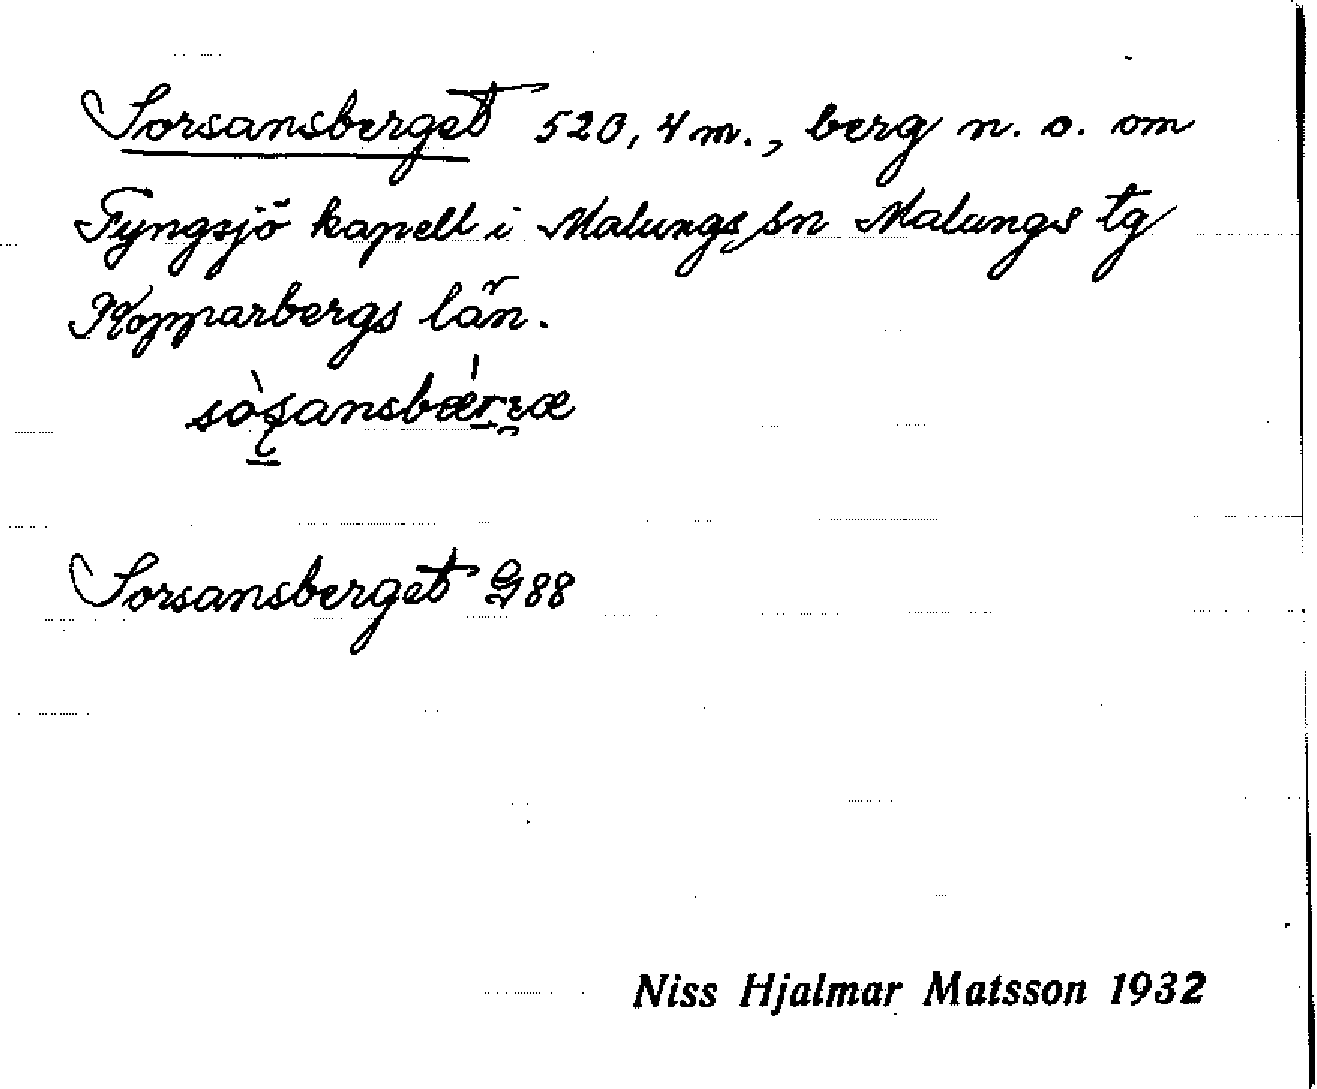 Sorsansberget 520,4 m., berg n. o. om
Tyngsjö kapell i Malungs sn Malungs tg
Kopparbergs län.
Sorsansberget G88
Niss Hjalmar Matsson 1932